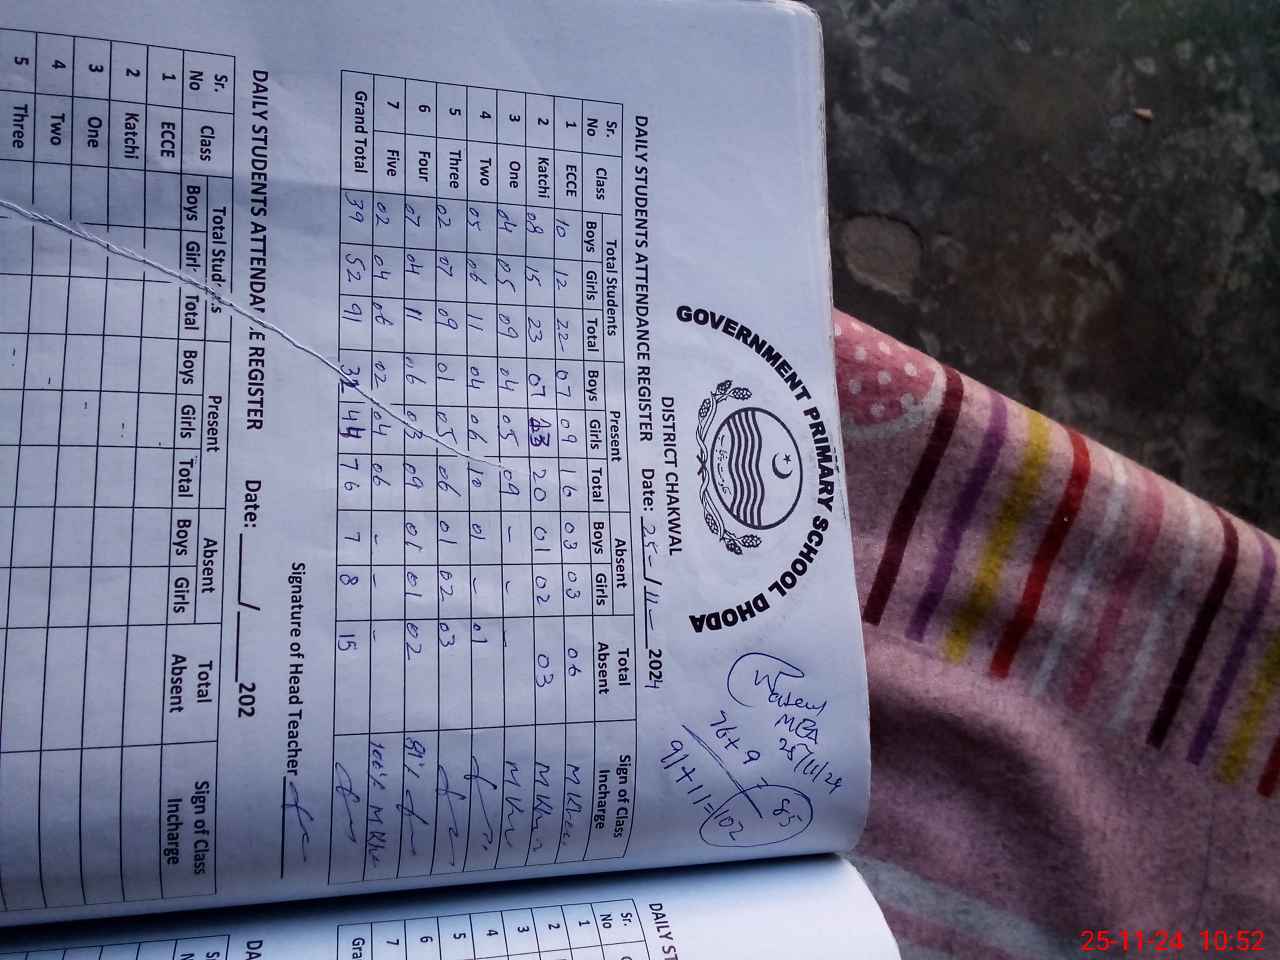 GOVERNMENT PRIMARY SCHOOL DHODA
DISTRICT CHAKWAL
DAILY STUDENTS ATTENDANCE REGISTER Date: 25-/11-/2024
MEA
25/11/24
76+9=85
91+11=102
Sr. No Class Total Students Present Absent Total Absent Sign of Class Incharge
Boys Girls Total Boys Girls Total Boys Girls
1 ECCE 10 12 22- 07 09 16 03 03 06
2 Katchi 08 15 23 07 13 20 01 02 03
3 One 04 05 09 04 05 09 - - -
4 Two 05 06 11 04 06 10 01 - 01
5 Three 02 07 09 01 05 06 01 02 03
6 Four 07 04 11 06 03 09 01 01 02
7 Five 02 04 06 02 04 06 - - -
Grand Total 39 52 91 32 44 76 7 8 15
Signature of Head Teacher
DAILY STUDENTS ATTENDANCE REGISTER Date: ____/____202
Sr. No Class Total Students Present Absent Total Absent Sign of Class Incharge
Boys Girls Total Boys Girls Total Boys Girls
1 ECCE
2 Katchi
3 One
4 Two
5 Three
DAILY ST
Sr. No
1
2
3
4
5
6
7
Gra
DA
25-11-24 10:52